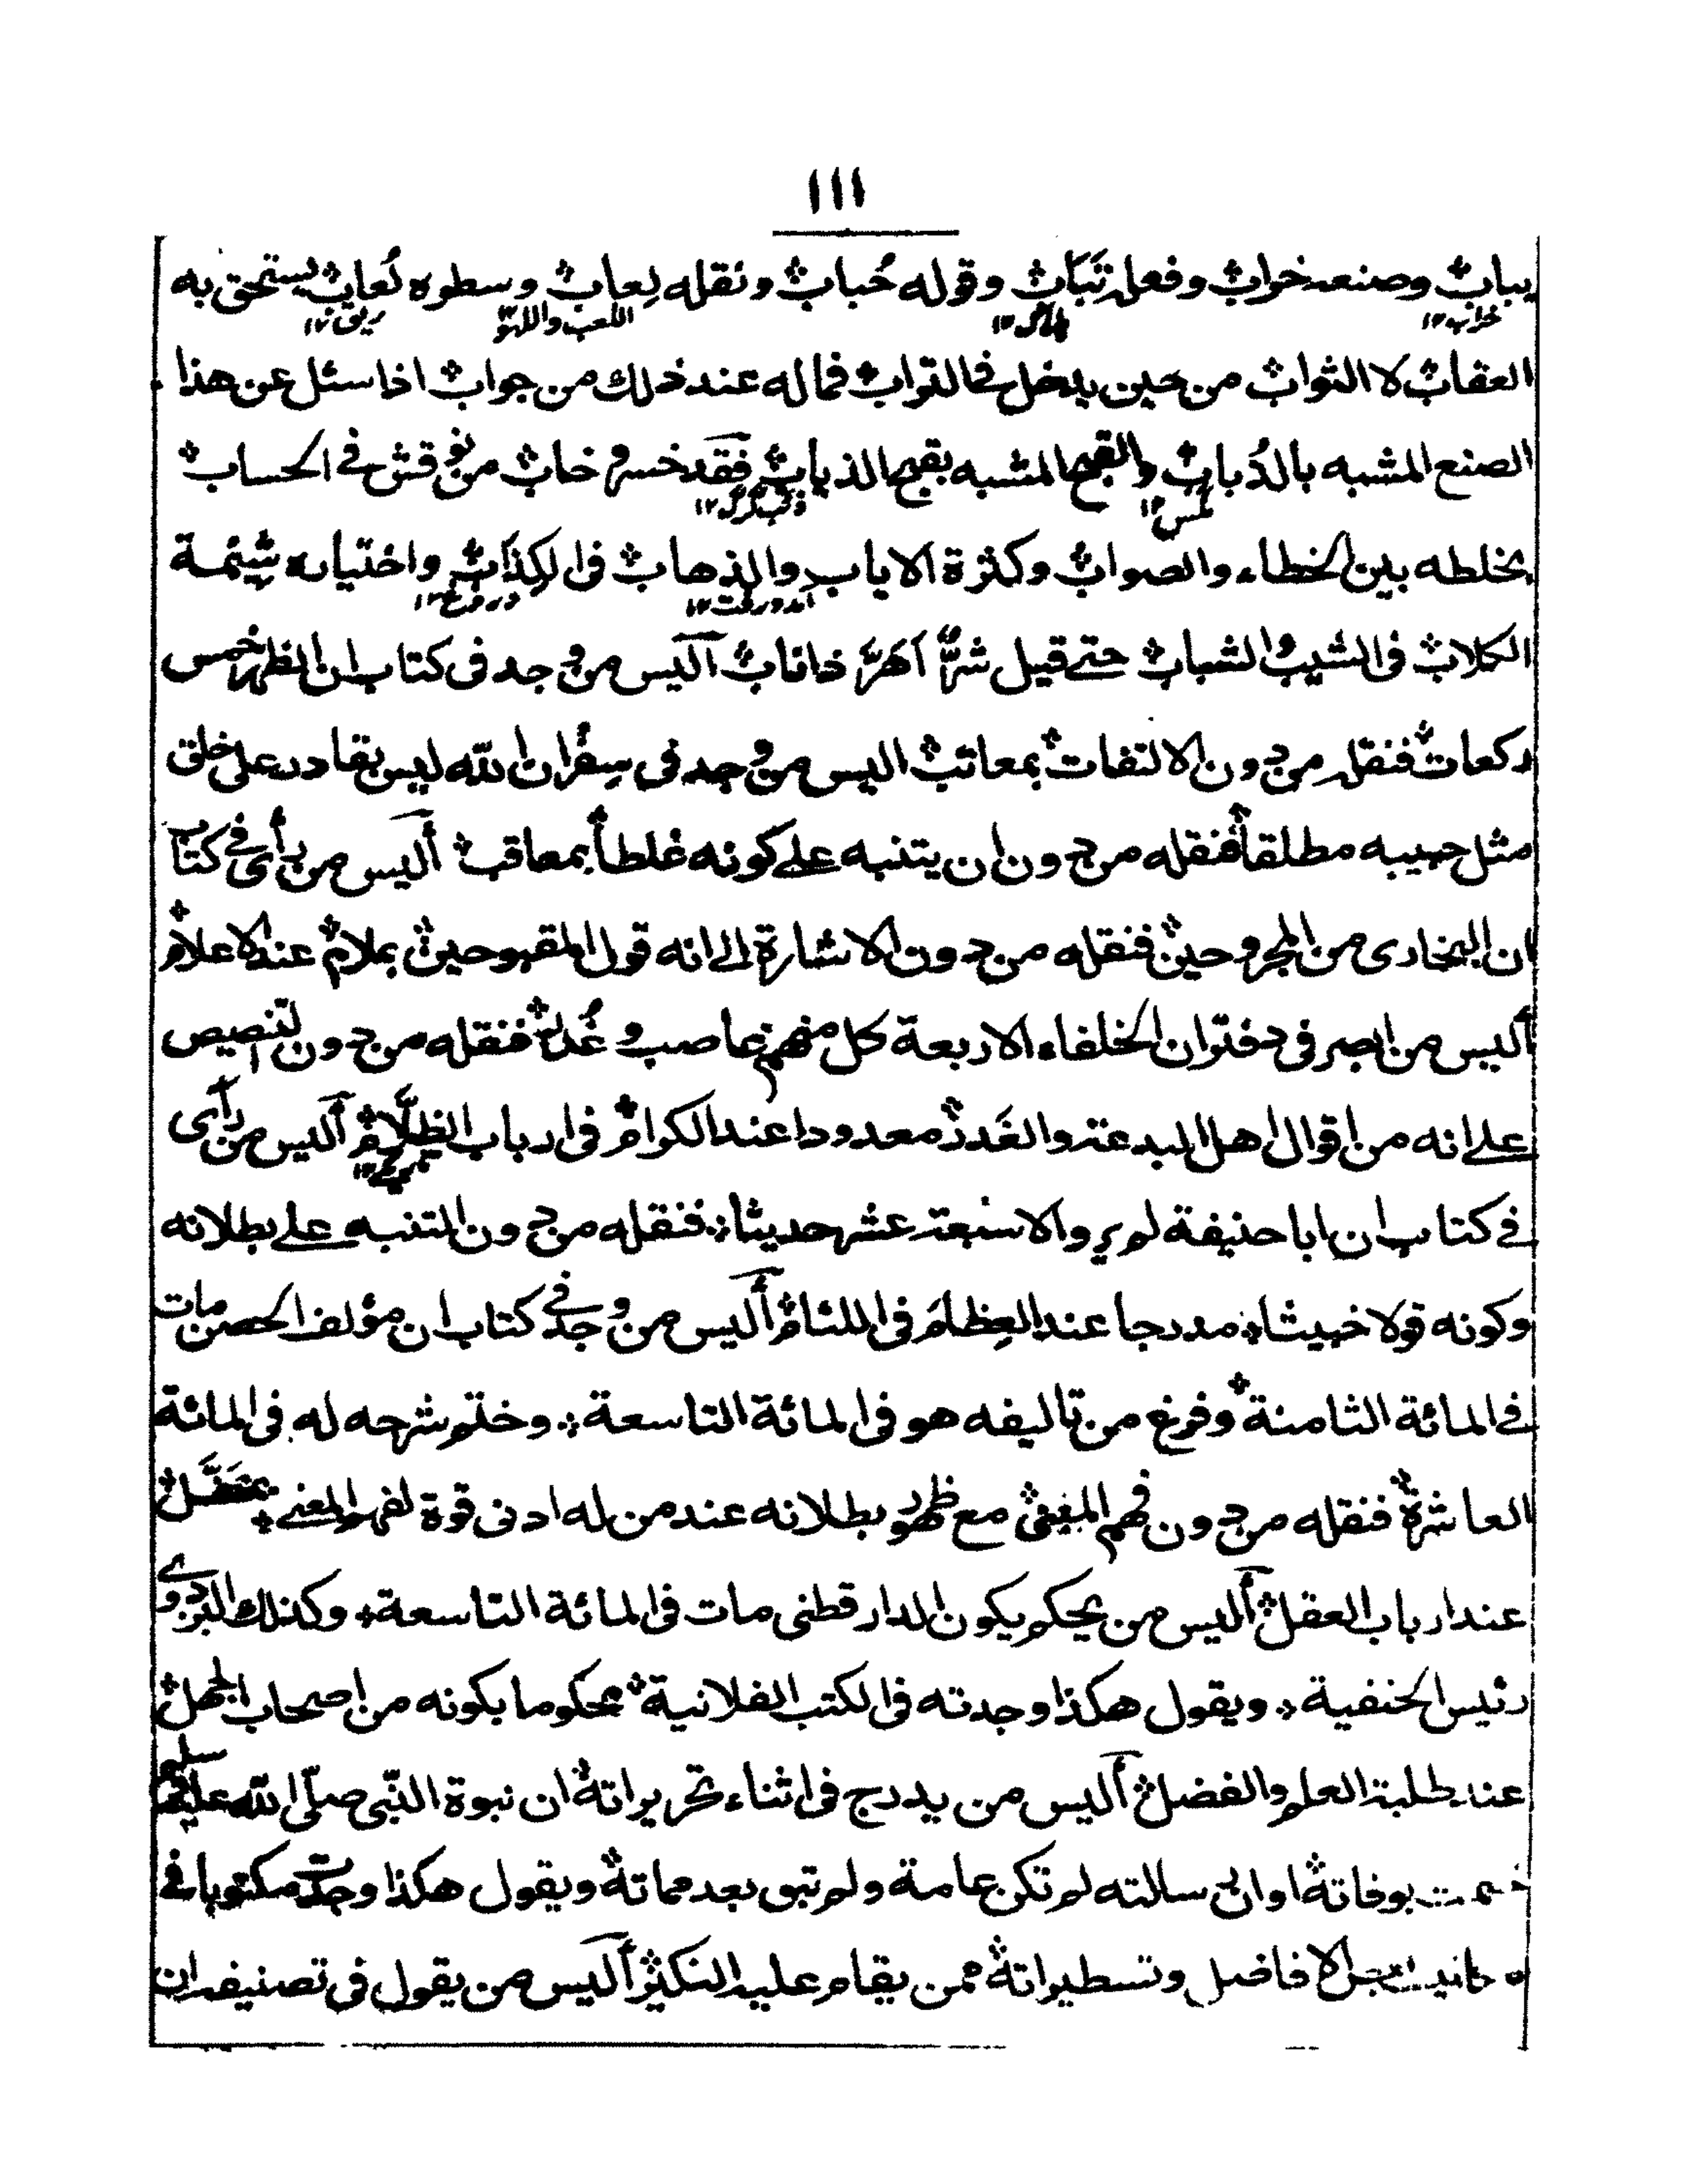 ١١١
يباب وصنعه خراب وفعله تَبَاب وقوله حُباب ونقله لِعاب وسطوره لُعاب يستحق به
خراب١٢ اللعب واللهو ريق١٢
العقاب لا الثواب من حين يدخل فى التراب فماله عند ذلك من جواب اذا سئل عن هذا
الصنع المشبه بالذُباب والقبح المشبه بقبح الذياب فقد خسر وخاب من نوقش فى الحساب
مگس١٢
بخلطه بين الخطاء والصواب وكثرة الاياب والذهاب فى الكِذَاب واختياره شِيْمة
آمد ورفت١٢ دروغ١٢
الكلاب فى الشيب والشباب حتى قيل شرٌّ اَهَرَّ ذاناب أليس من وجد فى كتاب ان الظهر خمس
ركعات فنقله من دون الالتفات بمعاتب اليس من وجد فى سِفْر ان الله ليس بقادر على خلق
مثل حبيبه مطلقا فنقله من دون ان يتنبه على كونه غلطاً بمعاقب أليس من رأى فى كتاب
ان البخارى من المجروحين فنقله من دون الاشارة الى انه قول المقبوحين بملام عند الاعلام
أليس من ابصر فى دفتر ان الخلفاء الاربعة كل منهم غاصب و غُدَر فنقله من دون التنصيص
على انه من اقوال اهل البدعة والغَدر معدودا عند الكرام فى ارباب الظلَّام أليس من رأى
فى كتاب ان ابا حنيفة لم يرو الا سبعة عشر حديثا فنقله من دون التنبه على بطلانه
وكونه قولا خبيثا مدرجا عند العِظام فى اللئام أليس من وجد فى كتاب ان مؤلف الحصن مات
فى المائة الثامنة وفرغ من تاليفه هو فى المائة التاسعة وختم شرحه له فى المائة
العاشرة فنقله من دون فهم المعنى مع ظهور بطلانه عند من له ادنى قوة لفهم المعنى
عند ارباب العقل أليس من يحكم بكون الدارقطنى مات فى المائة التاسعة وكذلك البزدوى
رئيس الحنفية ويقول هكذا وجدته فى الكتب الفلانية محكوما بكونه من اصحاب الجهل
عند طلبة العلم والفضل أليس من يدرج فى اثناء تحريراته ان نبوة النّبى صلّى الله عليه وسلم
بوفاته او ان رسالته لم تكن عامة ولم تبق بعد مماته ويقول هكذا وجدت مكتوبا فى
الافاضل وتسطيراته ممن يقام عليه النكير أليس من يقول فى تصنيفه ان